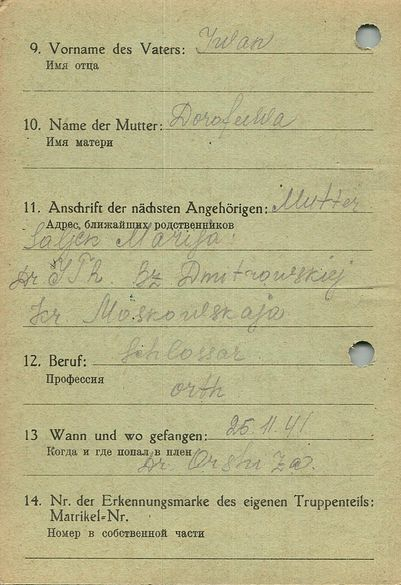 9. Vorname des Vaters: Iwan
Имя отца
10. Name der Mutter: Dorofeewa
Имя матери
11. Anschrift der nächsten Angehörigen: Mutter
Адрес, ближайших родственников
Marija
Dr. Dmitrowskiej
Kr Moskowskaja
12. Beruf: Schlossar
Профессия
orth
13 Wann und wo gefangen: 25.11.41
Когда и где попал в плен
Dr.
14. Nr. der Erkennungsmarke des eigenen Truppenteils:
Matrikel-Nr.
Номер в собственной части